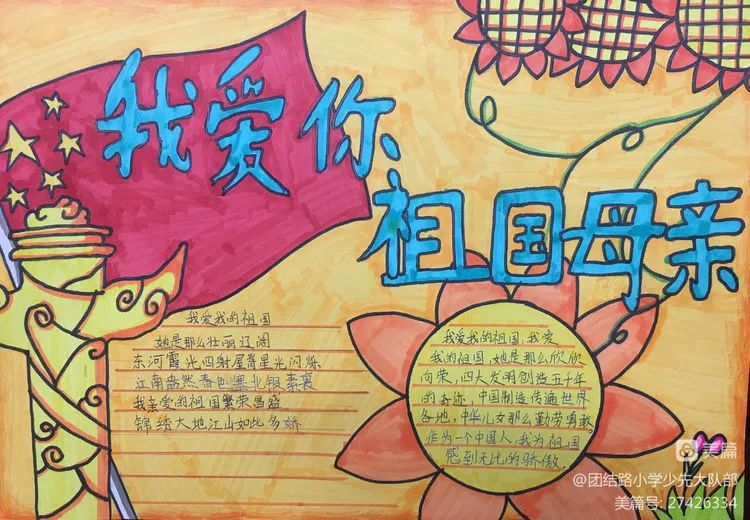 我爱你
祖国母亲
我爱我的祖国
她是那么壮丽辽阔
东河霞光四射屋脊星光闪烁
江南盎然春色塞北银素裹
我亲爱的祖国繁荣昌盛
锦绣大地江山如此多娇
我爱我的祖国,我爱
我的祖国,她是那么欣欣
向荣,四大发明创造五千年
的奇迹,中国制造传遍世界
各地,中华儿女那么勤劳勇敢。
作为一个中国人,我为祖国
感到无比的骄傲。
美篇
@团结路小学少先大队部
美篇号: 27426334